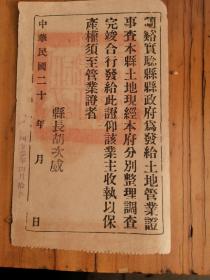 蘭谿實驗縣縣政府為發給土地管業證
事查本縣土地現經本府分別整理調查
完竣合行發給此證仰該業主收執以保
產權須至管業證者
縣長胡次威
中華民國二十 年 月 日